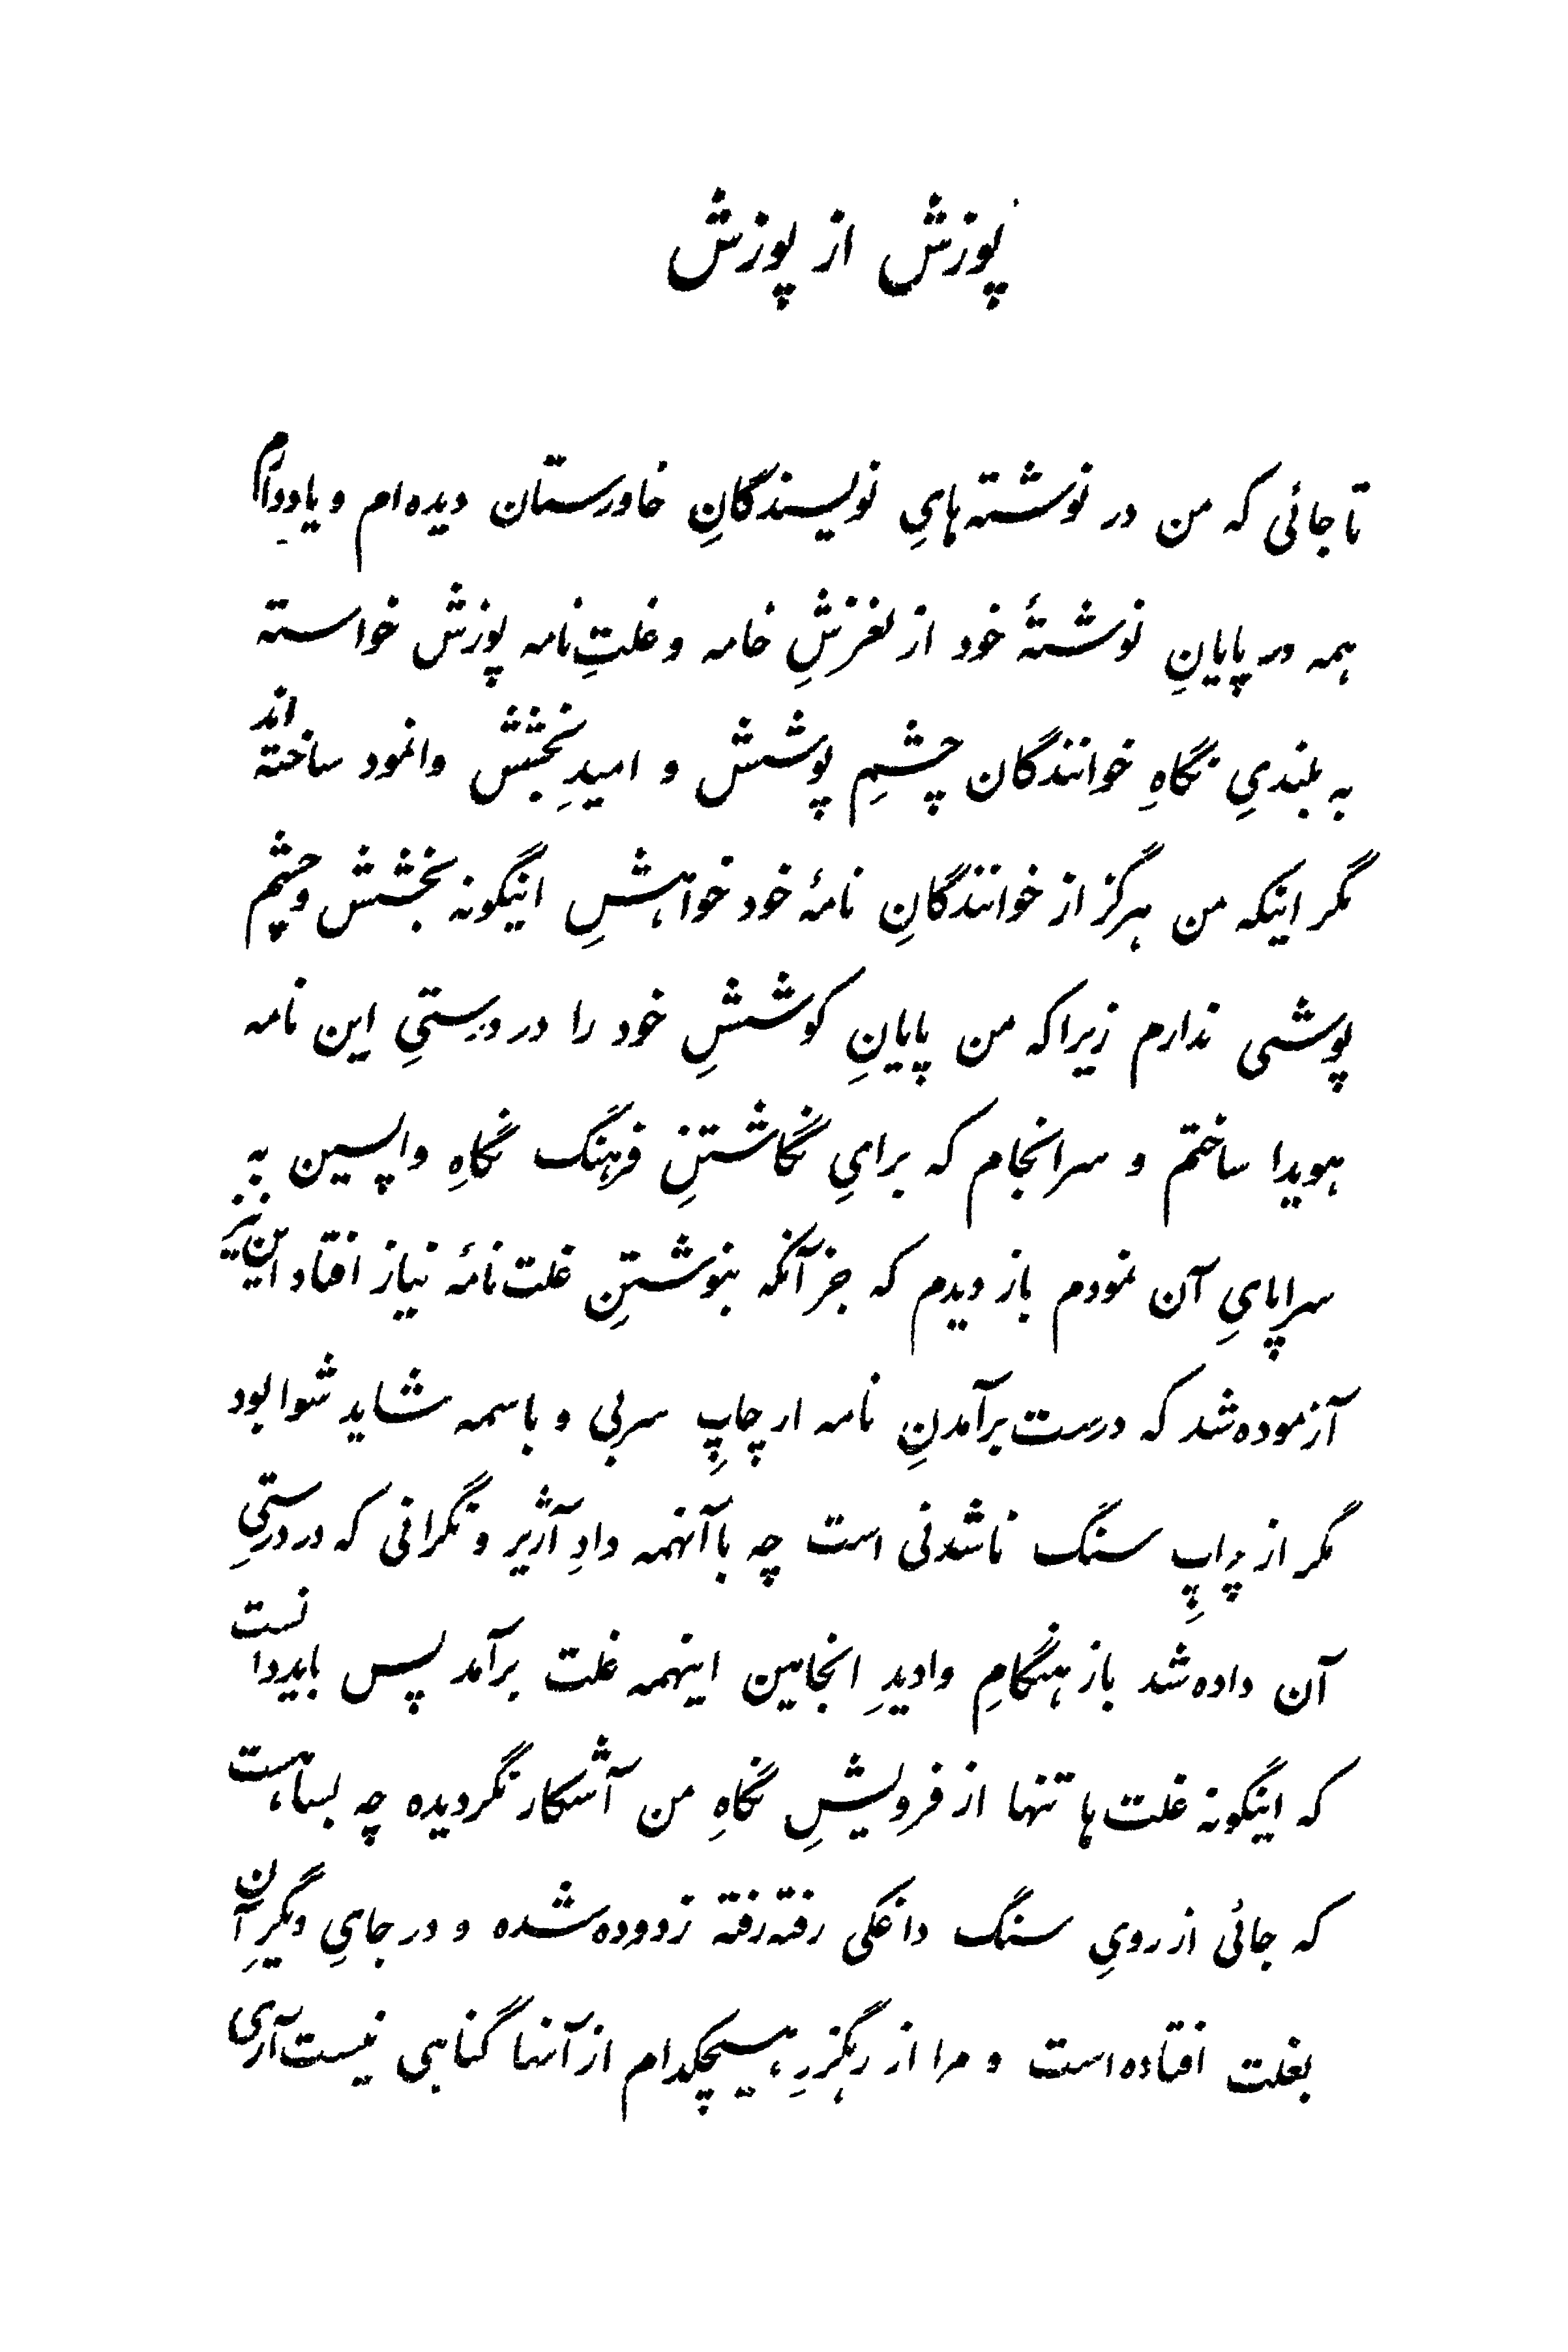 پوزش از پوزش
تا جائی که من در نوشته‌هایِ نویسندگانِ خاورستان دیده‌ام و یاد دارم
همه در پایانِ نوشتهٔ خود از لغزشِ خامه و غلتِ نامه پوزش خواسته
به بلندیِ نگاهِ خوانندگان چشمِ پوشش و امیدِ بخشش وانمود ساخته‌اند
مگر اینکه من هرگز از خوانندگانِ نامهٔ خود خواهشِ اینگونه بخشش و چشم
پوشی ندارم زیرا که من پایانِ کوششِ خود را در درستیِ این نامه
هویدا ساختم و سرانجام که برایِ نگاشتنِ فرهنگ نگاهِ واپسین به
سراپایِ آن نمودم باز دیدم که جز آنکه بنوشتنِ غلت‌نامهٔ نیاز افتاد این نیز
آزموده شد که درست برآمدنِ نامه از چاپِ سربی و باسمه شاید شوا بود
مگر از چاپِ سنگ ناشدنی است چه با آنهمه دادِ آژیر و نگرانی که در درستیِ
آن داده شد باز هنگامِ وادیدِ انجامین اینهمه غلت برآمد پس باید دانست
که اینگونه غلت‌ها تنها از فرویشِ نگاهِ من آشکار نگردیده چه بساهست
که جائی از رویِ سنگ داغکی رفته رفته زدوده شده و در جایِ دیگرِ آن
بغلت افتاده است و مرا از رهگزرِ هیچکدام از آنها گناهی نیست آری